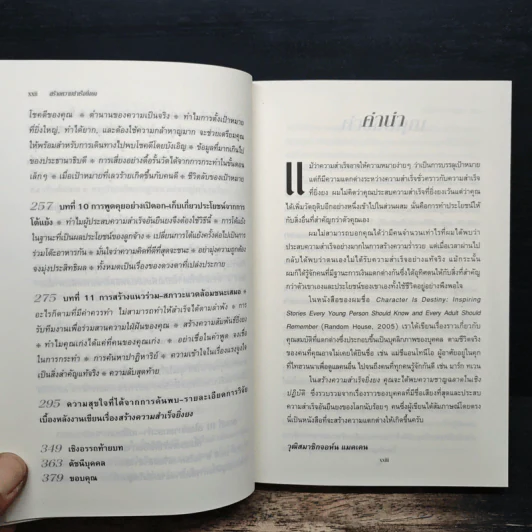 ๖๘ สร้างความสำเร็จยั่งยืน
โชคดีของคุณ ● ตำนานของความเป็นจริง ● ทำไมการตั้งเป้าหมาย
ที่ยิ่งใหญ่, ทำได้ยาก, และต้องใช้ความกล้าหาญมาก จะช่วยเตรียมคุณ
ให้พร้อมสำหรับการเดินทางไปพบโชคดีโดยบังเอิญ ● ข้อมูลที่มากเกินไป
ของประชานาธิบดี ● การเสี่ยงอย่างดื้อรั้นวัดได้จากการกระทำในขั้นตอน
เล็กๆ ● เมื่อเป้าหมายที่เลวร้ายเกิดขึ้นกับคนดี ● ชีวิตลับของเป้าหมาย
257 บทที่ 10 การพูดคุยอย่างเปิดอก-เก็บเกี่ยวประโยชน์จากการ
โต้แย้ง ● ทำไมผู้ประสบความสำเร็จอันยืนยงจึงต้องใช้วิธีนี้ ● การโต้แย้ง
ในฐานะที่เป็นผลประโยชน์ของลูกจ้าง ● เปลี่ยนการโต้แย้งครั้งต่อไปเป็นการ
ร่วมโต๊ะอาหารกัน ● มั่นใจว่าความคิดที่ดีที่สุดจะชนะ ● อย่ามุ่งความถูกต้อง
จงมุ่งประสิทธิผล ● ทั้งหมดเป็นเรื่องของดวงตาที่เปล่งประกาย
275 บทที่ 11 การสร้างแนวร่วม-สภาวะแวดล้อมชนะเสมอ ●
อะไรก็ตามที่มีค่าควรทำ ไม่สามารถทำให้สำเร็จได้ตามลำพัง ● การ
รับทีมงานเพื่อร่วมสานความใฝ่ฝันของคุณ ● สร้างความสัมพันธ์ยั่งยง
● ทำไมคุณเก่งได้แค่ที่คนของคุณเก่ง ● อย่าเชื่อในคำพูด จงเชื่อ
ในการกระทำ ● การค้นหาปาฏิหาริย์ ● ความเข้าใจในเรื่องแรงจูงใจ
เป็นสิ่งสำคัญแท้จริง ● ความลับสุดท้าย
295 ความสุขใจที่ได้จากการค้นพบ-รายละเอียดการวิจัย
เบื้องหลังงานเขียนเรื่องสร้างความสำเร็จยิ่งยง
349 เชิงอรรถท้ายบท
363 ดัชนีบุคคล
379 ขอบคุณ
คำนำ
แม้ว่าความสำเร็จอาจให้ความหมายง่ายๆ ว่าเป็นการบรรลุเป้าหมาย
แต่ก็มีความแตกต่างระหว่างความสำเร็จชั่วคราวกับความสำเร็จ
ที่ยิ่งยง ผมไม่คิดว่าคุณประสบความสำเร็จที่ยิ่งยงเว้นแต่ว่าคุณ
ได้เพิ่มวัตถุดิบอีกอย่างหนึ่งเข้าไปในส่วนผสม นั่นคือการทำประโยชน์ให้
กับสิ่งอื่นที่สำคัญกว่าตัวคุณเอง
ผมไม่สามารถบอกคุณได้ว่ามีคนจำนวนเท่าไรที่ผมได้พบว่า
ประสบความสำเร็จอย่างมากในการสร้างความร่ำรวย แต่เมื่อเวลาผ่านไป
กลับได้พบว่าตนเองไม่ได้ประสบความสำเร็จอย่างแท้จริง แม้กระนั้น
ผมก็ได้รู้จักคนที่มีฐานะการเงินแตกต่างกันซึ่งได้อุทิศตนให้กับสิ่งที่สำคัญ
กว่าตัวเขาเองและประโยชน์ของเขาเองทั้งใช้ชีวิตอยู่อย่างพึงพอใจ
ในหนังสือของผมชื่อ Character Is Destiny: Inspiring
Stories Every Young Person Should Know and Every Adult Should
Remember (Random House, 2005) เราได้เขียนเรื่องราวเกี่ยวกับ
คุณสมบัติที่แตกต่างกันซึ่งประกอบขึ้นเป็นบุคลิกภาพของบุคคล ตามชีวิตจริง
ของคนที่คุณอาจไม่เคยได้ยินชื่อ เช่น แม่ชีแอนโทนีโอ ผู้อาศัยอยู่ในคุก
ที่ไทฮวนนาเพื่อดูแลคนอื่น ไปจนถึงคนที่ทุกคนรู้จักกันดี เช่น มาร์ก ทเวน
ในสร้างความสำเร็จยิ่งยง คุณจะได้พบความชาญฉลาดในเชิง
ปฏิบัติ ซึ่งรวบรวมจากเรื่องราวของบุคคลที่มีชื่อเสียงที่สุดและประสบ
ความสำเร็จอันยืนยงของโลกนับร้อยๆ คนซึ่งผู้เขียนได้สัมภาษณ์โดยตรง
นี่เป็นหนังสือที่จะสร้างความแตกต่างให้เกิดขึ้นครับ
วุฒิสมาชิกจอห์น แมคเคน